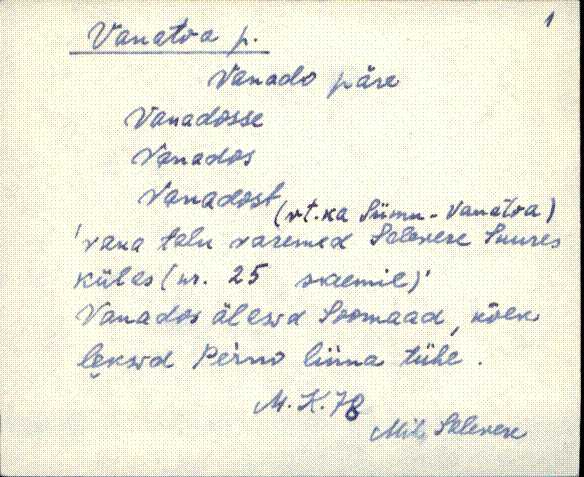 1
Vanatoa p.
Vanado päre
Vanadosse
Vanados
Vanadost
(vt. ka Siimu-Vanatoa)
'vana talu varemed Salevere Suures
külas (nr. 25 skeemil)'
Vanados õlewd Soomaad, kõek
lekswd Perno liina tühe.
M. K. 78
Mih, Salevere